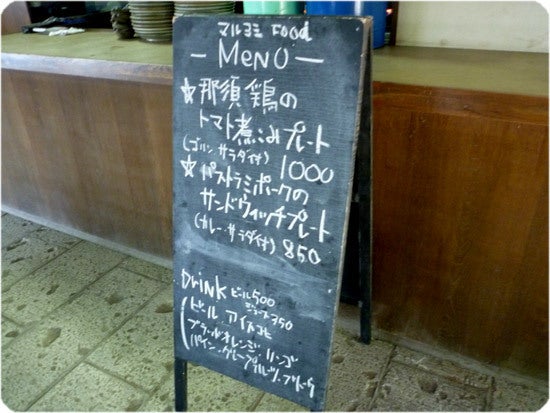 マルヨミ Food
— MENU —
☆那須鶏の
トマト煮込みプレート
(ゴハン サラダ付) 1000
☆パストラミポークの
サンドウィッチプレート
(カレー・サラダ付) 850
Drink ビール500
ジュース350
ビール アイスコーヒー
ブラッドオレンジ・リンゴ
パイン・グレープフルーツ・